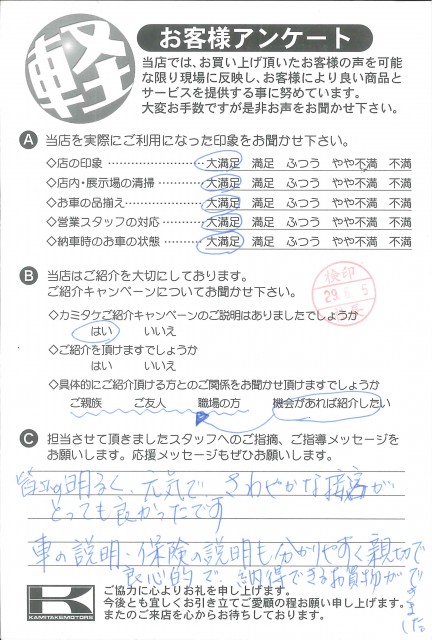 軽
お客様アンケート
当店では、お買い上げ頂いたお客様の声を可能
な限り現場に反映し、お客様により良い商品と
サービスを提供する事に努めています。
大変お手数ですが是非お声をお聞かせ下さい。
A 当店を実際にご利用になった印象をお聞かせ下さい。
◇店の印象 大満足 満足 ふつう やや不満 不満
◇店内・展示場の清掃 大満足 満足 ふつう やや不満 不満
◇お車の品揃え 大満足 満足 ふつう やや不満 不満
◇営業スタッフの対応 大満足 満足 ふつう やや不満 不満
◇納車時のお車の状態 大満足 満足 ふつう やや不満 不満
B 当店はご紹介を大切にしております。
ご紹介キャンペーンについてお聞かせ下さい。
検印
29.6.5
◇カミタケご紹介キャンペーンのご説明はありましたでしょうか
はい いいえ
◇ご紹介を頂けますでしょうか
はい いいえ
◇具体的にご紹介頂ける方とのご関係をお聞かせ頂けますでしょうか
ご親族 ご友人 職場の方 機会があれば紹介したい
C 担当させて頂きましたスタッフへのご指摘、ご指導メッセージを
お願いします。応援メッセージもぜひお願いします。
皆さん明るく、元気で、さわやかな接客が
とっても良かったです
車の説明・保険の説明も分かりやすく親切で
良心的で、納得できるお買物ができました
K
KAMITAKE MOTORS
ご協力に心よりお礼を申し上げます。
今後とも宜しくお引き立てご愛顧の程お願い申し上げます。
またのご来店を心からお待ちしております。